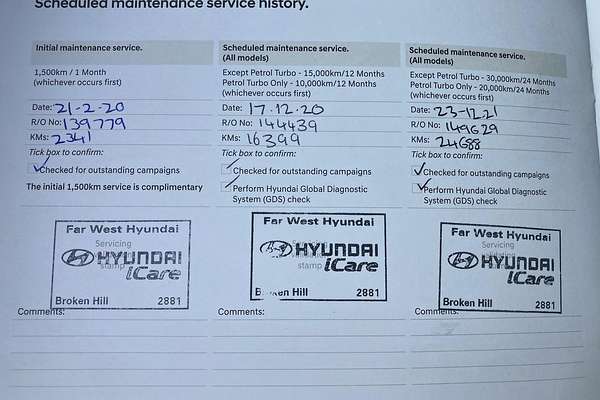 Scheduled maintenance service history.
Initial maintenance service.
1,500km / 1 Month
(whichever occurs first)
Date: 21-2-20
R/O No: 139779
KMs: 2341
Tick box to confirm:
Checked for outstanding campaigns
The initial 1,500km service is complimentary
Far West Hyundai
Servicing
HYUNDAI
stamp
iCare
Broken Hill 2881
Comments:
Scheduled maintenance service.
(All models)
Except Petrol Turbo - 15,000km/12 Months
Petrol Turbo Only - 10,000km/12 Months
(whichever occurs first)
Date: 17.12.20
R/O No: 144439
KMs: 16399
Tick box to confirm:
Checked for outstanding campaigns
Perform Hyundai Global Diagnostic
System (GDS) check
Far West Hyundai
Servicing
HYUNDAI
stamp
iCare
Broken Hill 2881
Comments:
Scheduled maintenance service.
(All models)
Except Petrol Turbo - 30,000km/24 Months
Petrol Turbo Only - 20,000km/24 Months
(whichever occurs first)
Date: 23-12.21
R/O No: 149629
KMs: 24688
Tick box to confirm:
Checked for outstanding campaigns
Perform Hyundai Global Diagnostic
System (GDS) check
Far West Hyundai
Servicing
HYUNDAI
stamp
iCare
Broken Hill 2881
Comments: